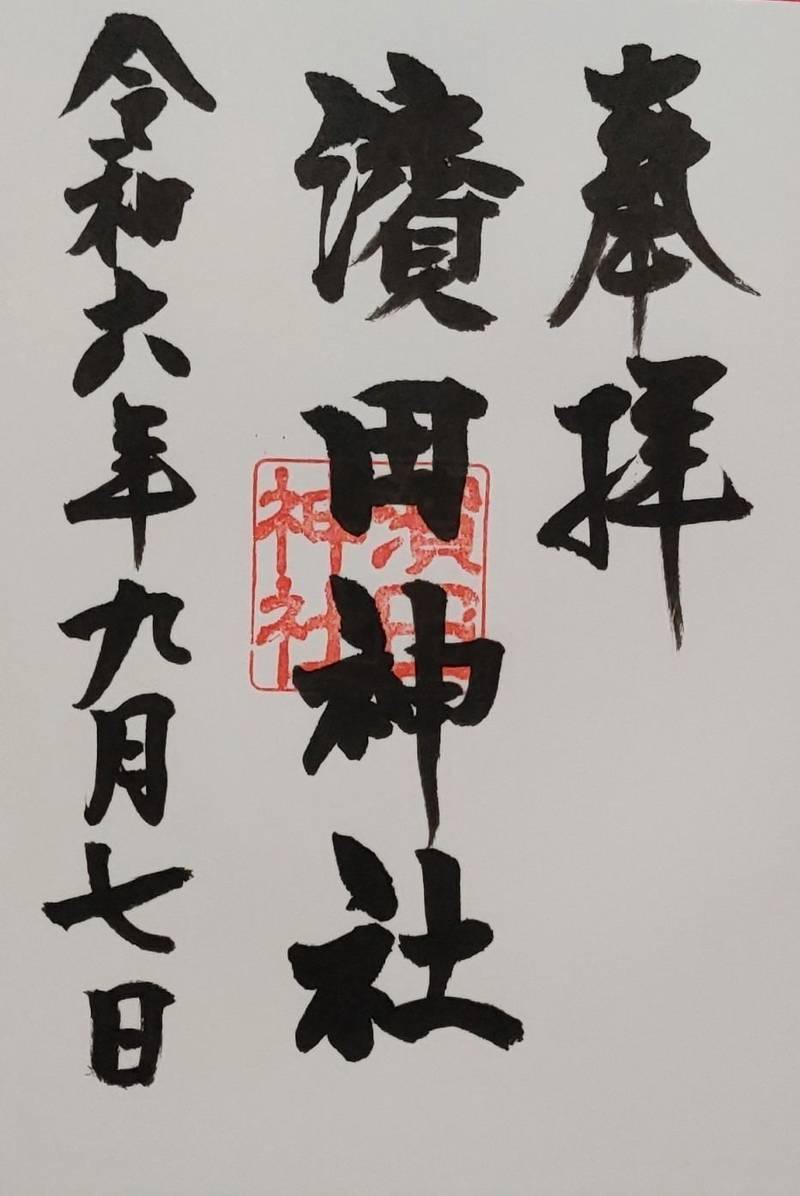 奉拝
濱田神社
濱田
神社
令和六年九月七日